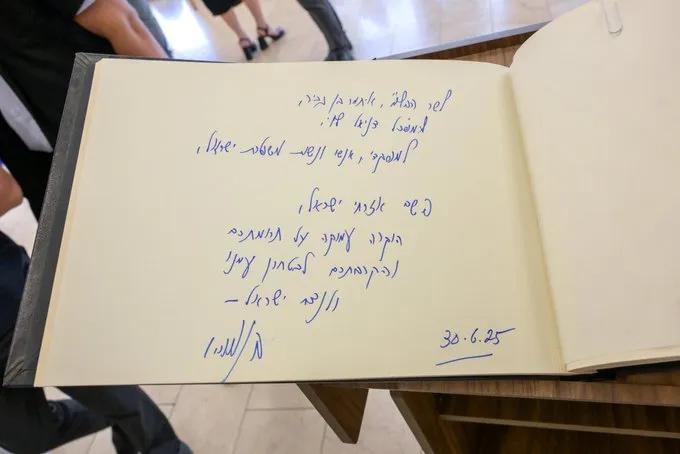 לשר הבל"מ, איתמר בן גביר,
למפכ"ל דניאל לוי,
למפקדי, אנשי ונשות משטרת ישראל,
בשם אזרחי ישראל,
הוקרה עמוקה על תרומתכם
והקרבתכם לבטחון עמנו
ולנצח ישראל –
ב. נתניהו
30.6.25